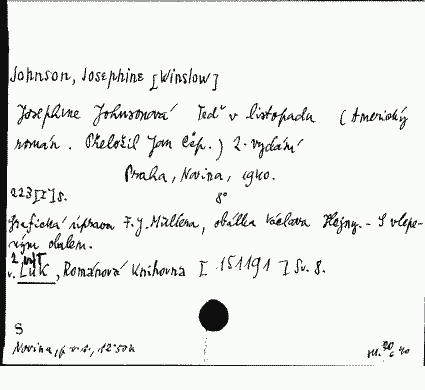 Johnson, Josephine [Winslow]
Josephine Johnsonová Teď v listopadu (Americký
román. Přeložil Jan Čep.) 2. vydání
Praha, Novina, 1940.
223 [I] s. 8°
Grafická úprava F. J. Müllera, obálka Václava Hejny. - S vlepe-
ným obalem.
v. Luk, Románová knihovna [151191] Sv. 8.
S
Novina, 12.50 K